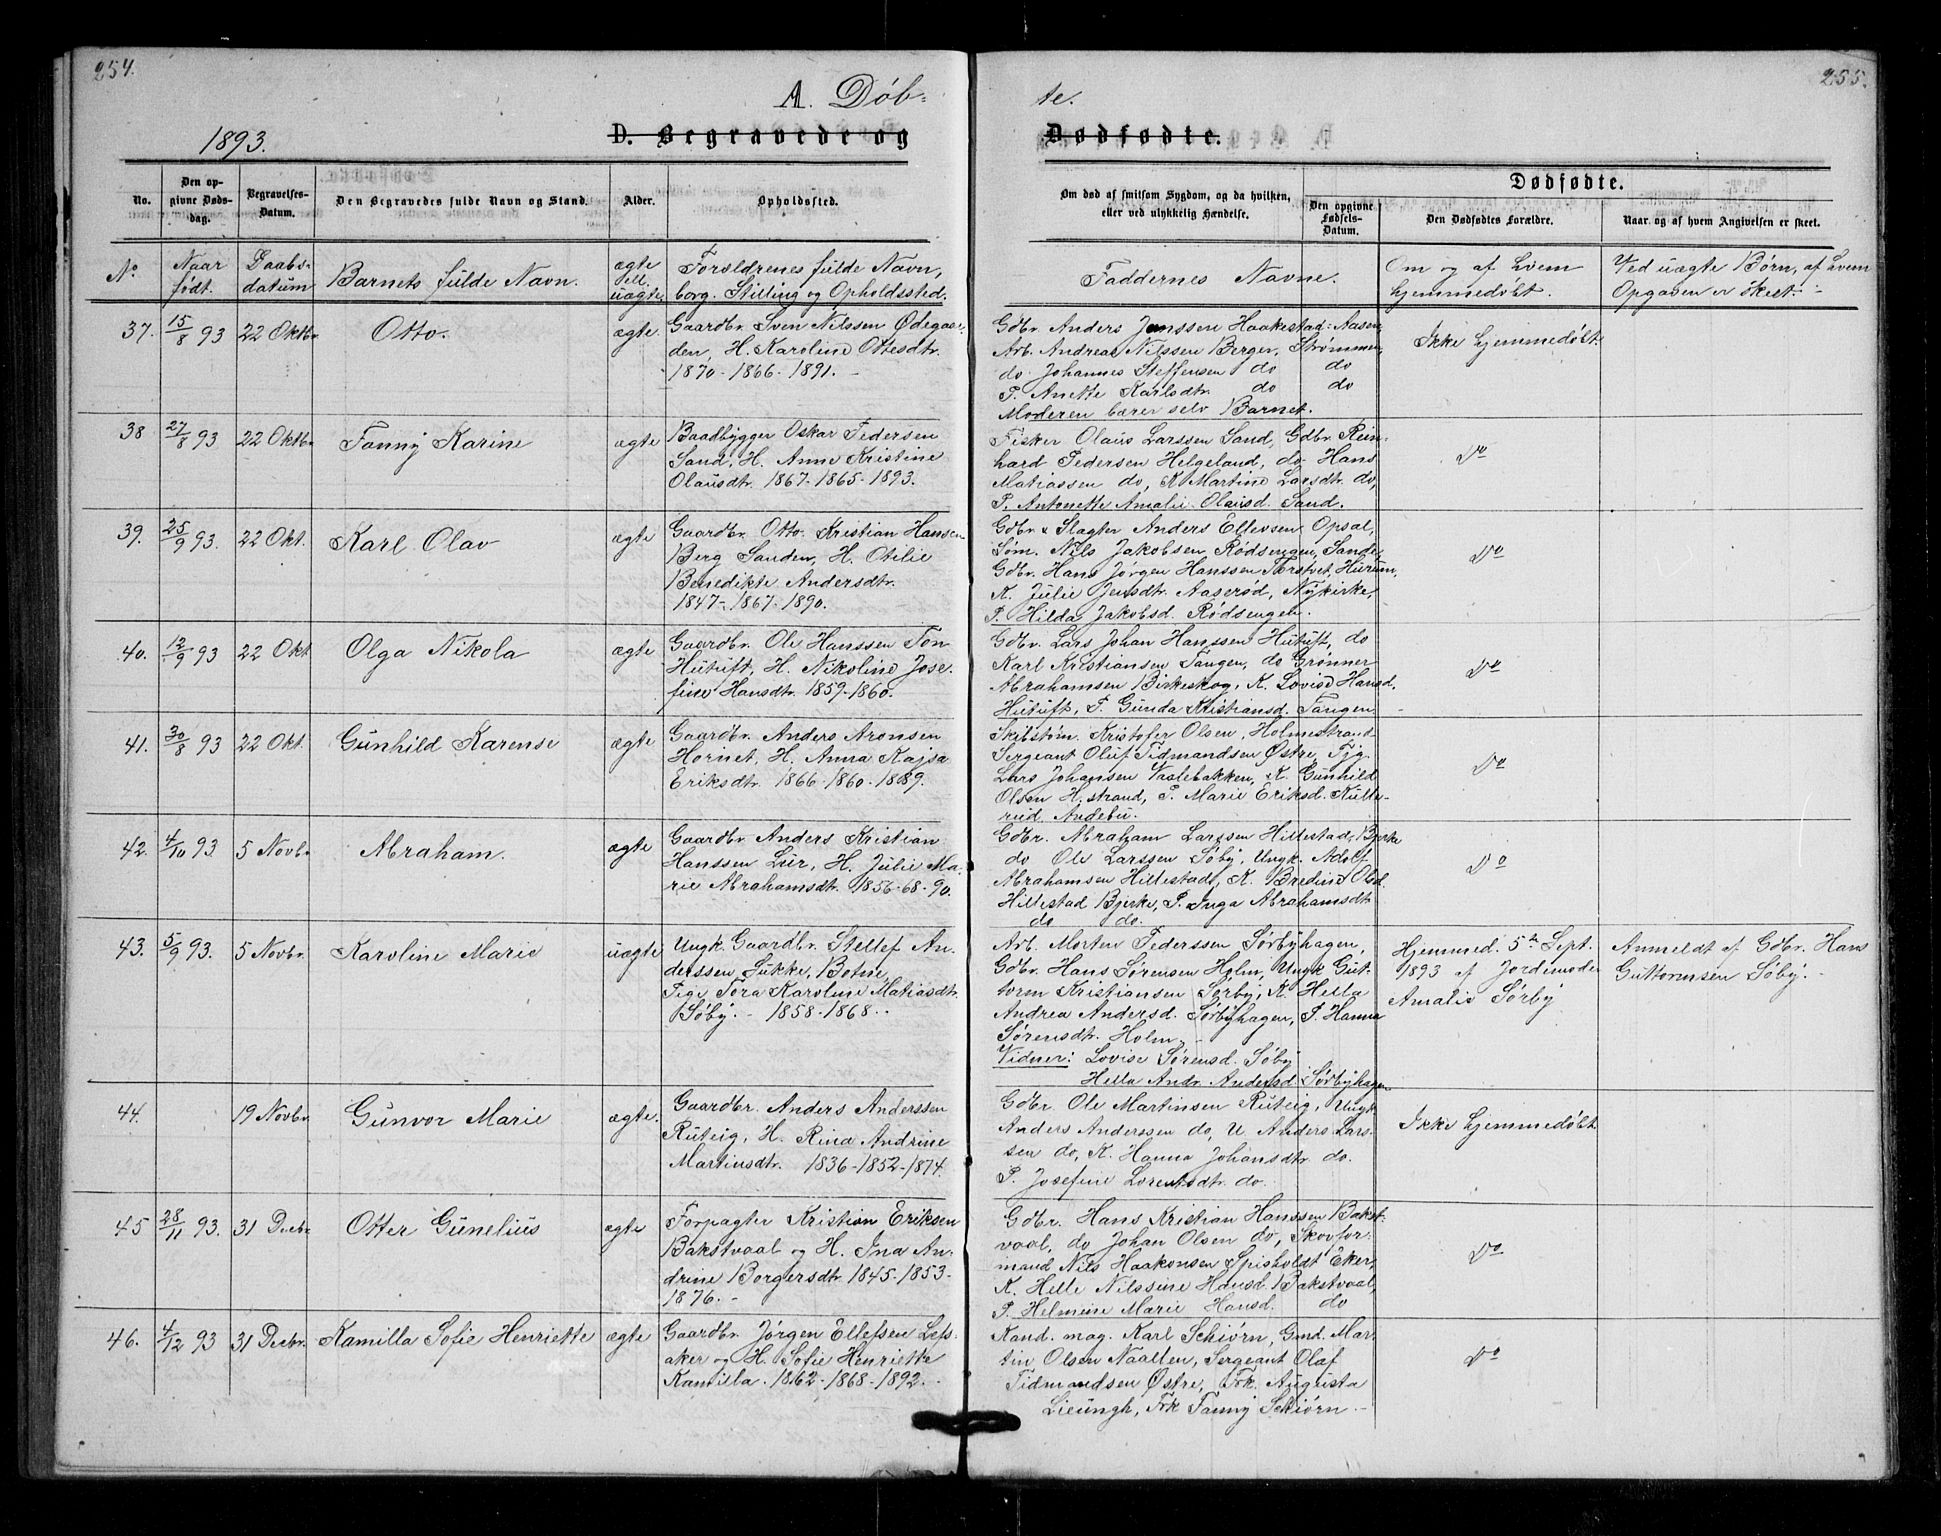 254.
255.
A. Döb-
te.
1893.
D. Begravede og
Dødfødte.
No.
Den op-
givne Døds-
dag.
Begravelses-
Datum.
Den Begravedes fulde Navn og Stand.
Alder.
Opholdssted.
Om død af smitsom Sygdom, og da hvilken,
eller ved ulykkelig Hændelse.
Dødfødte.
Den opgivne
Fødsels-
Datum.
Den Dødfødtes Forældre.
Naar og af hvem Angivelsen er skeet.
No
Naar
født.
Daabs-
datum
Barnets fulde Navn.
ægte
ell.
uægte
Forældrenes fulde Navn,
borg. Stilling og Opholdssted.
Faddernes Navne.
Om og af hvem
hjemmedöbt.
Ved uægte Børn, af hvem
Opgaven er skeet.
37. 15/8 93 22 Oktbr Otto. ægte
Gaardbr. Sven Nilssen Ødegaar-
den, H. Karoline Ottesdtr.
1870 - 1866 - 1891. -
Gdbr. Anders Jenssen Haakestad-Aasen,
Arb. Andreas Nilssen Berger, Strømmen,
do Johannes Steffensen do do
P. Anette Karlsdtr. do do
Moderen bærer selv Barnet.
Ikke hjemmedöbt.
38 27/8 93 22 Oktbr Fanny Karine ægte
Baadbygger Oskar Pedersen
Sand, H. Anne Kristine
Olausdtr. 1867 - 1865 - 1893.
Fisker Olaus Larssen Sand, Gdbr. Rein-
hard Pedersen Helgeland, do Hans
Matiassen do, K. Martine Larsdtr. do,
P. Antonette Amalie Olausd. Sand.
Do
39. 25/9 93. 22 Okt. Karl Olav ægte
Gaardbr. Otto Kristian Hansen
Berg Sanden, H. Otelie
Benedikte Andersdtr.
1847 - 1867 - 1890.
Gdbr. & Slagter Anders Ellevsen Opsal,
Søm. Nils Jakobsen Rødsengen, Sande,
Gdbr. Hans Jørgen Hanssen Torstvet, Hurum,
K. Julie Jensdtr. Aaserød, Nykirke,
P. Hilda Jakobsd. Rødsengen.
Do
40. 12/9 93 22 Okt Olga Nikola ægte
Gaardbr. Ole Hanssen Tøn
Hutuft, H. Nikoline Jose-
fine Hansdtr. 1859 - 1860.
Gdbr. Lars Johan Hanssen Hutuft, do
Karl Kristiansen Tangen, do Grønner
Abrahamsen Birkeskog, K. Lovise Hansd.
Hutuft, P. Gunda Kristiansd. Tangen.
Do
41. 30/8 93 22 Okt. Gunhild Karense ægte
Gaardbr. Anders Aronsen
Hornet, H. Anna Kajsa
Eriksdtr. 1866 - 1860 - 1889.
Skibstøm. Kristofer Olsen, Holmestrand
Sergeant Oluf Tidmandsen Østre, Pig.
Lars Johansen Vaalebakken, K. Gunhild
Olsen H.strand, P. Marie Eriksd. Kulle-
rud, Andebu.
Do
42. 4/10 93 5 Novbr Abraham. ægte
Gaardbr. Anders Kristian
Hanssen Lur, H. Julie Ma-
rie Abrahamsdtr. 1856 - 68 - 90.
Gdbr. Abraham Larssen Hillestad, Bjerke
do Ole Larssen Søby, Ungk. Adolf
Abrahamsen Hillestad, K. Bredine Olsd.
Hillestad Bjerke, P. Inga Abrahamsdtr.
do do.
Do
43. 5/9 93. 5 Novbr. Karoline Marie uægte
Ungk. Gaardbr. Stellef An-
derssen Sukke, Botne,
Pige Tora Karoline Matiasdtr.
Søby. - 1858 - 1868. -
Arb. Morten Pederssen Sørbyhagen,
Gdbr. Hans Sørensen Holm, Ungk Gut-
torm Kristiansen Sørby, K. Hella
Andrea Andersd. Sørbyhagen, P. Hanna
Sørensdtr. Holm. -
Vidner: Lovise Sørensd. Søby
Hella Andr. Andersd. Sørbyhagen
Hjemmed. 5te Sept.
1893 af Jordemoder
Amalie Sørby
Anmeldt af Gdbr. Hans
Guttormsen Søby. -
44. 19 Novbr Gunvor Marie ægte.
Gaardbr. Anders Anderssen
Ruteig, H. Rina Andrine
Martinsdtr. 1836 - 1852 - 1874.
Gdbr Ole Martinsen Ruteig, Ungk
Anders Anderssen do, U Anders Lars-
sen do, K. Hanna Johansdtr. do.
P. Josefine Lorentsdtr. do.
Ikke hjemmedöbt
45 28/11 93. 31 Decbr Otter Gunelius ægte
Forpagter Kristian Eriksen
Bakstvaal og H. Ina An-
drine Borgersdtr. 1845 - 1853 -
1876. -
Gdbr. Hans Kristian Hanssen Bakst-
vaal, do Johan Olsen do, Skovfor-
mand Nils Haakonsen Spisholdt Eker,
K. Helle Nilssine Hansd. Bakstvaal,
P. Helmine Marie Hansd. do
Do
46. 4/12 93 31 Decbr. Kamilla Sofie Henriette ægte
Gaardbr. Jørgen Ellefsen Lefs-
aker og H. Sofie Henriette
Kamilla. 1862 - 1868 - 1892. -
Kand. mag. Karl Schiørn, Gmd. Mar-
tin Olsen Naalten, Sergeant Olaf
Tidmandsen Østre, Frk. Augusta
Lieungh, Frk Fanny Schiørn. -
Do